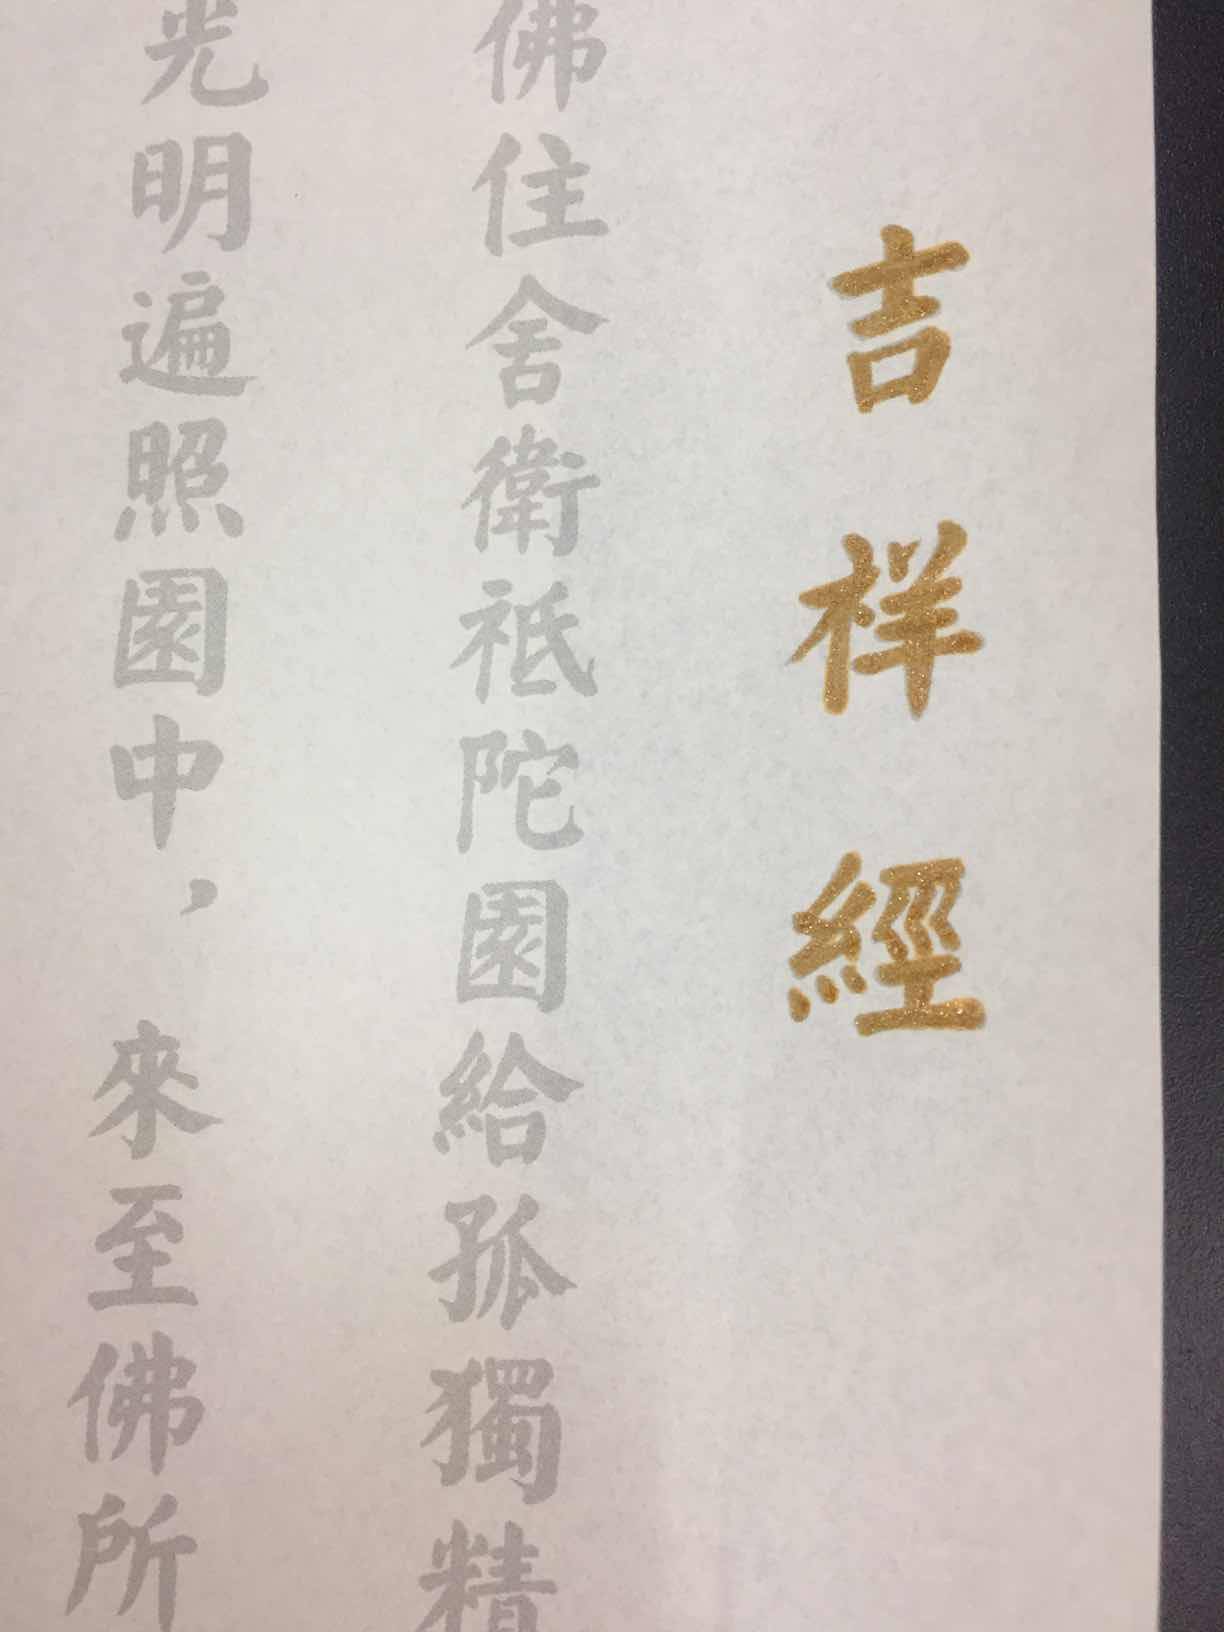 吉祥經
佛住舍衛祗陀園給孤獨精
光明遍照園中，來至佛所